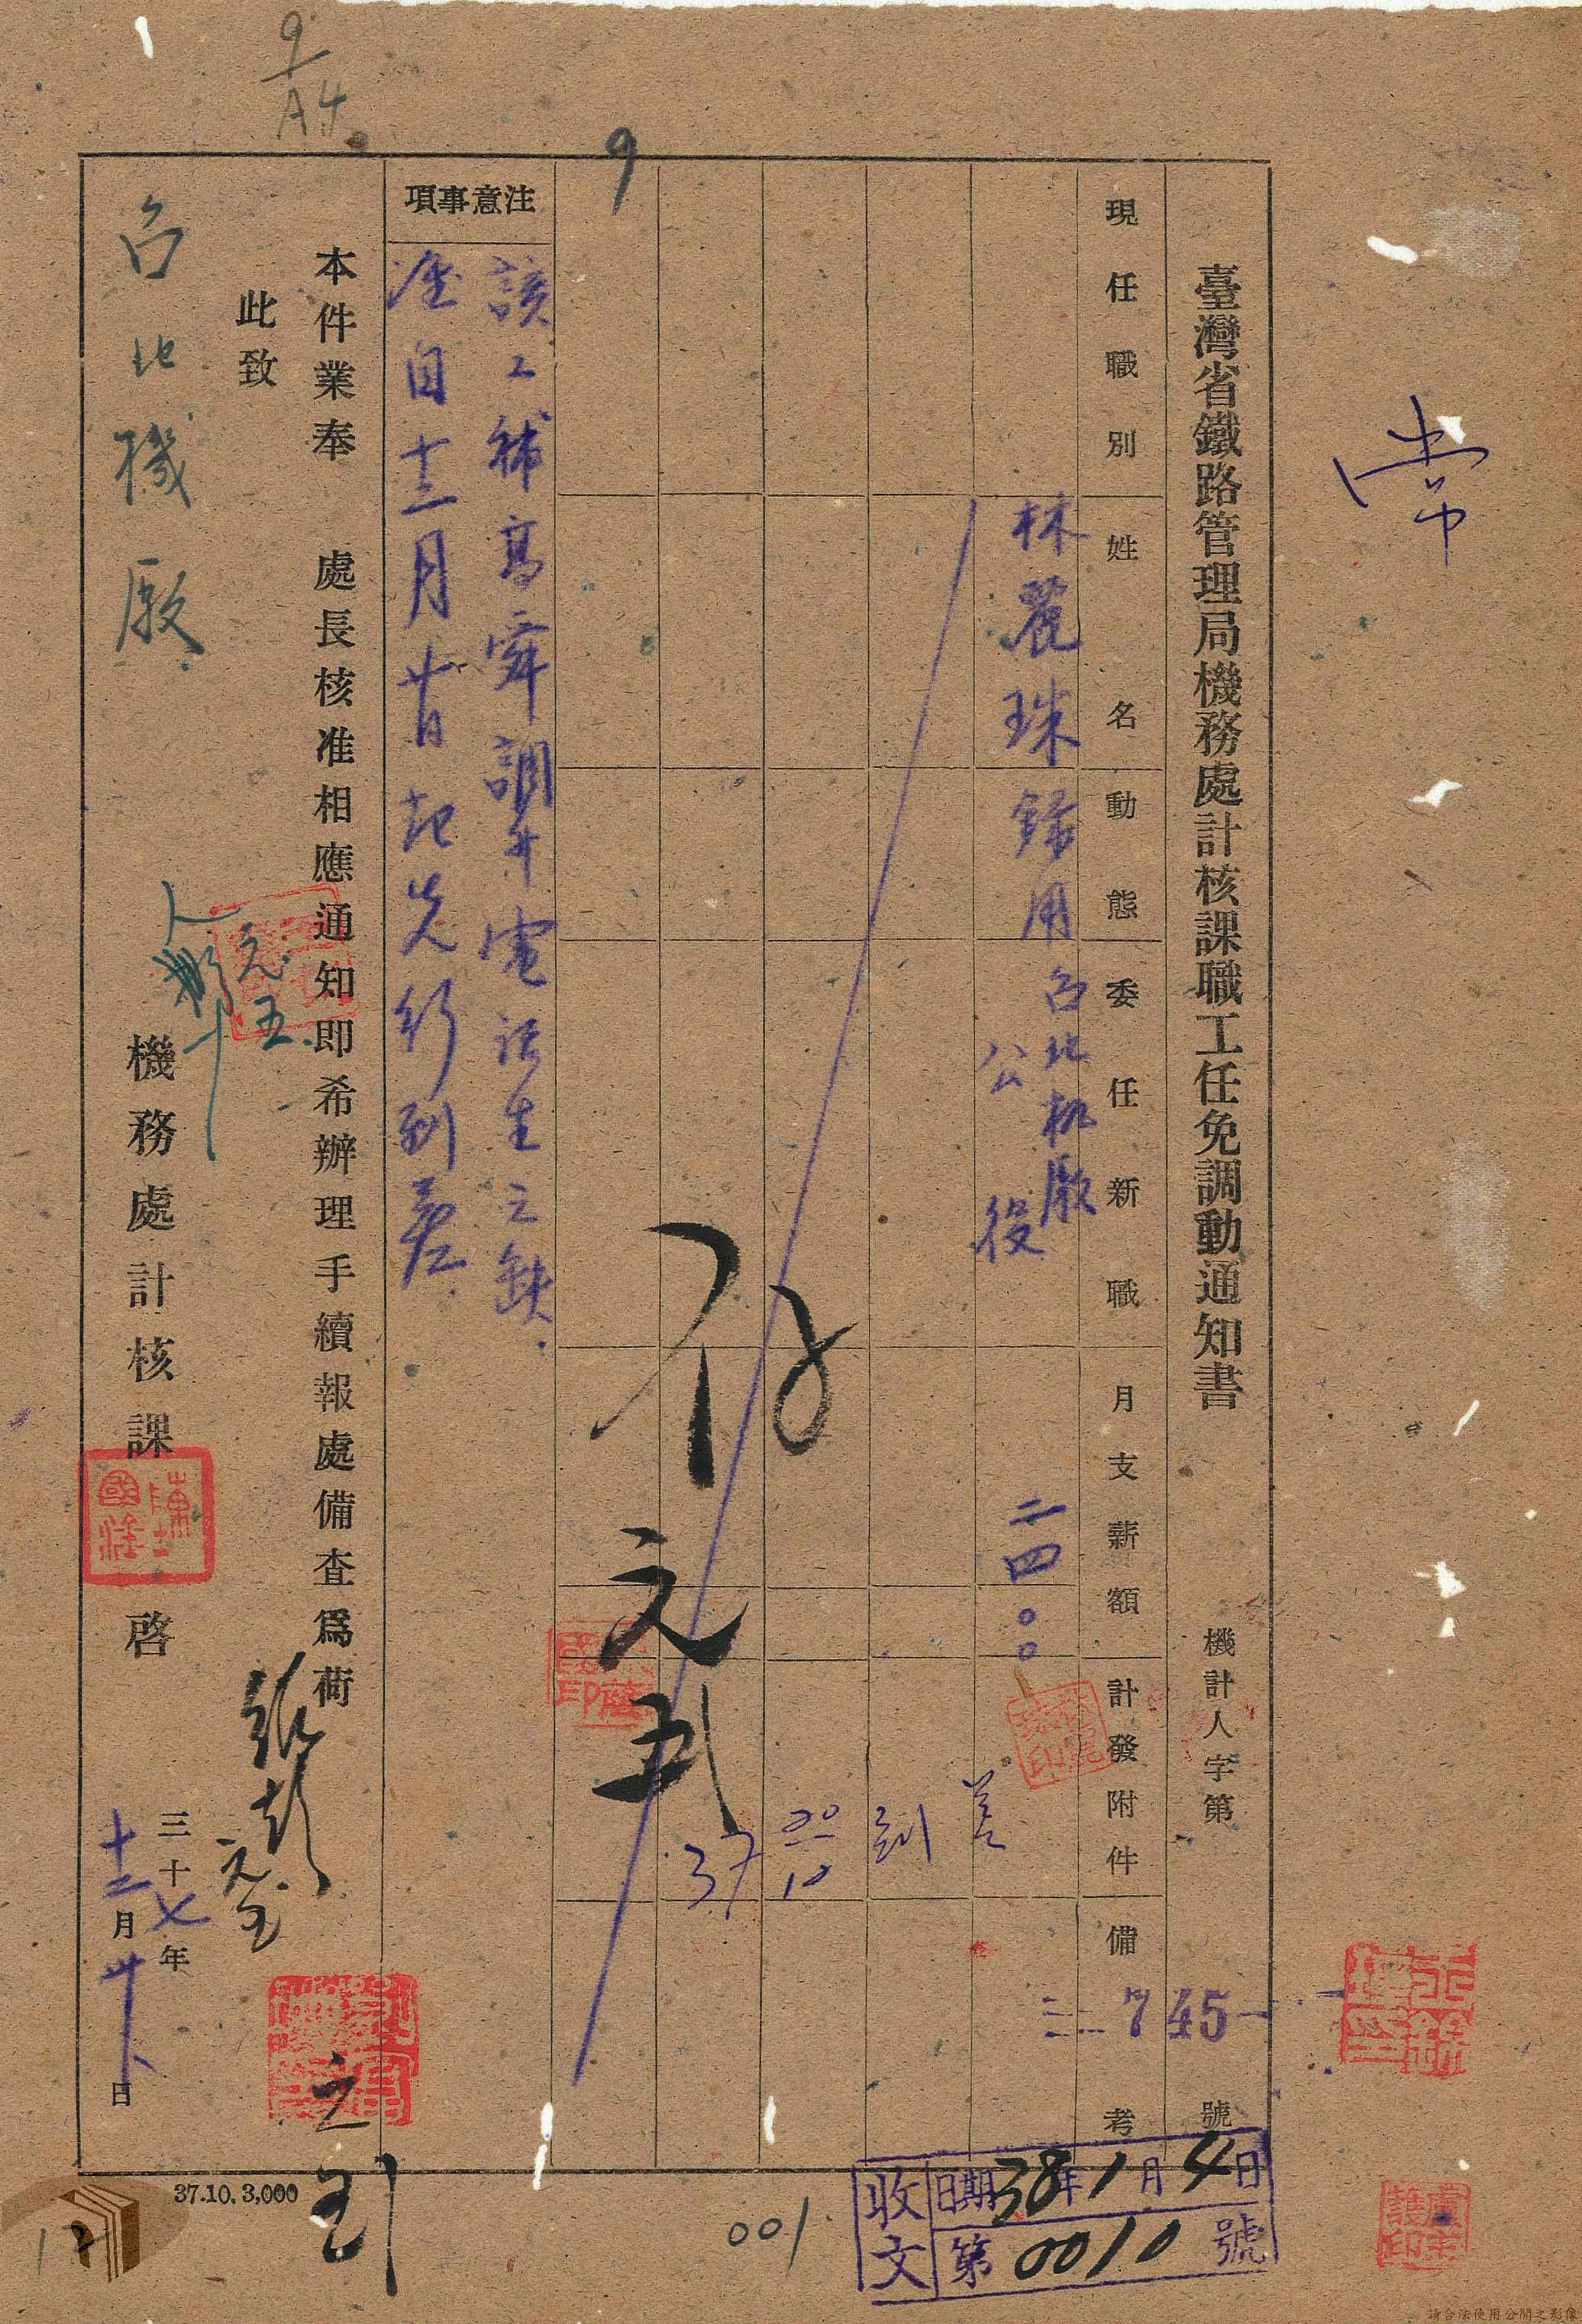 9
A4
9
常
臺灣省鐵路管理局機務處計核課職工任免調動通知書
機計人字第
745
號
現任職別
姓名
動態
委任新職
月支薪額
計發附件
備考
林麗珠
錄用
台北机廠
公役
二四〇〇
差
到
20
10
37
元
注意事項
該工補高舜調升電話生之缺
准自十二月廿日起先行到差
本件業奉 處長核准相應通知即希辦理手續報處備查爲荷
此致
台北機廠
機務處計核課
啓
三十七年
十二月廿八日
37.10.3,000
001
收文
日期38年1月4日
第0010號
請合法使用公開之影像